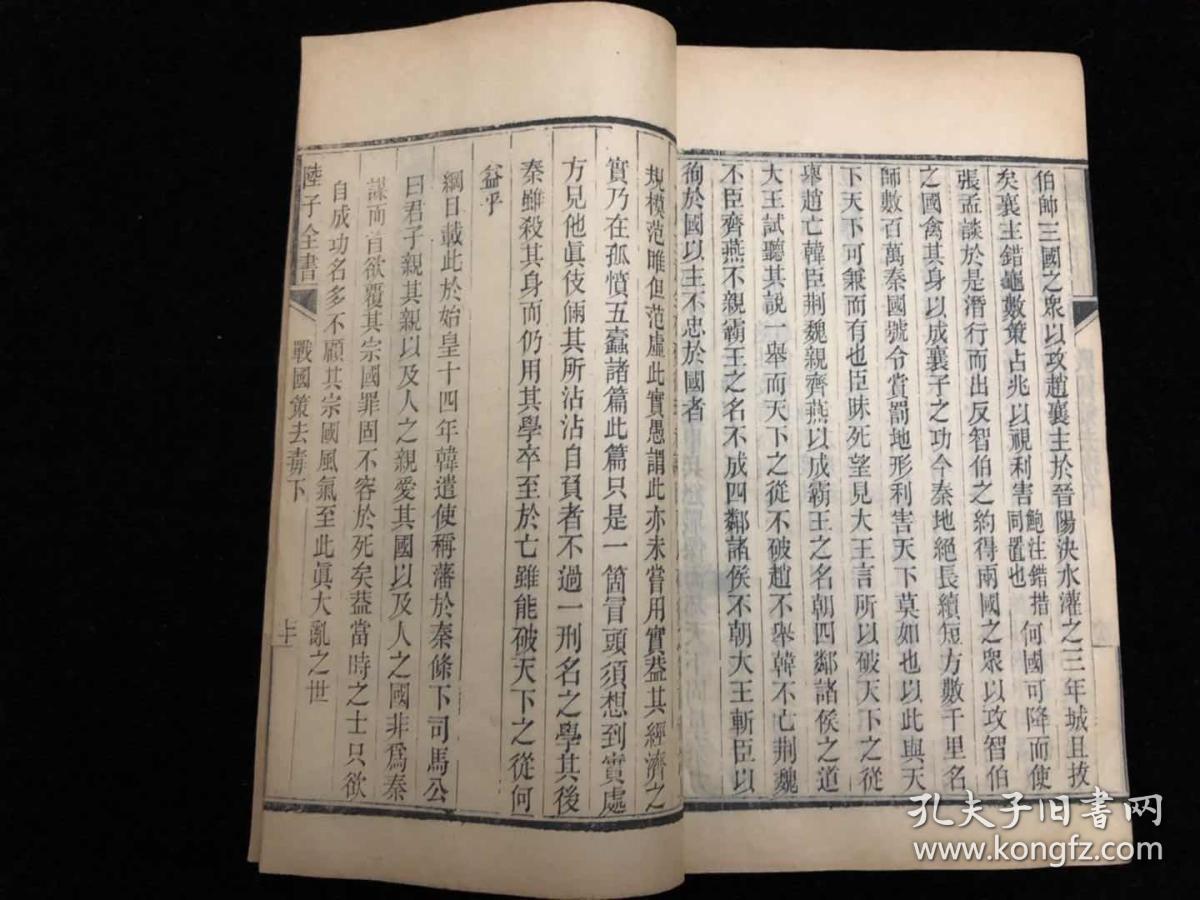 伯帥三國之衆以攻趙襄主於晉陽決水灌之三年城且拔
矣襄主錯龜數策占兆以視利害鮑注錯措同置也何國可降而使
張孟談於是潛行而出反智伯之約得兩國之衆以攻智伯
之國禽其身以成襄子之功今秦地絕長續短方數千里名
師數百萬秦國號令賞罰地形利害天下莫如也以此與天
下天下可兼而有也臣昧死望見大王言所以破天下之從
舉趙亡韓臣荆魏親齊燕以成霸王之名朝四鄰諸侯之道
大王試聽其說一舉而天下之從不破趙不舉韓不亡荆魏
不臣齊燕不親霸王之名不成四鄰諸侯不朝大王斬臣以
徇於國以主不忠於國者
規模范雎但范虛此實愚謂此亦未嘗用實葢其經濟之
實乃在孤憤五蠹諸篇此篇只是一箇冒頭須想到實處
方見他眞伎倆其所沾沾自負者不過一刑名之學其後
秦雖殺其身而仍用其學卒至於亡雖能破天下之從何
益乎
綱目載此於始皇十四年韓遣使稱藩於秦條下司馬公
曰君子親其親以及人之親愛其國以及人之國非爲秦
謀而首欲覆其宗國罪固不容於死矣葢當時之士只欲
自成功名多不顧其宗國風氣至此眞大亂之世
陸子全書
戰國策去毒下
孔夫子旧書网
www.kongfz.com